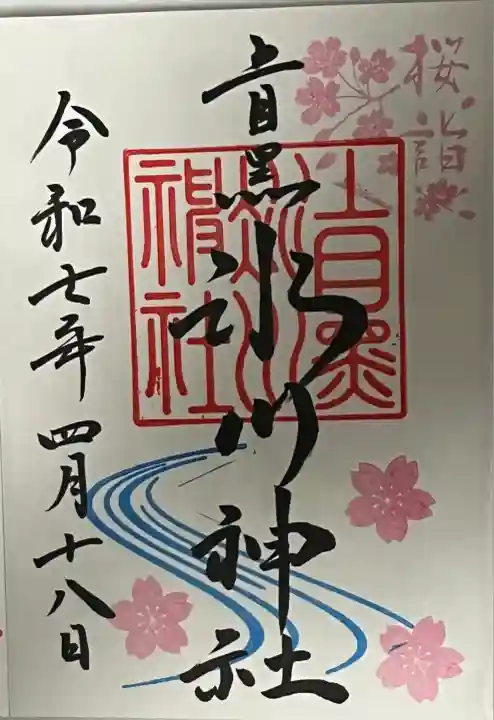 桜詣
上目黒氷川神社
上目黒
氷川
神社
令和七年四月十八日